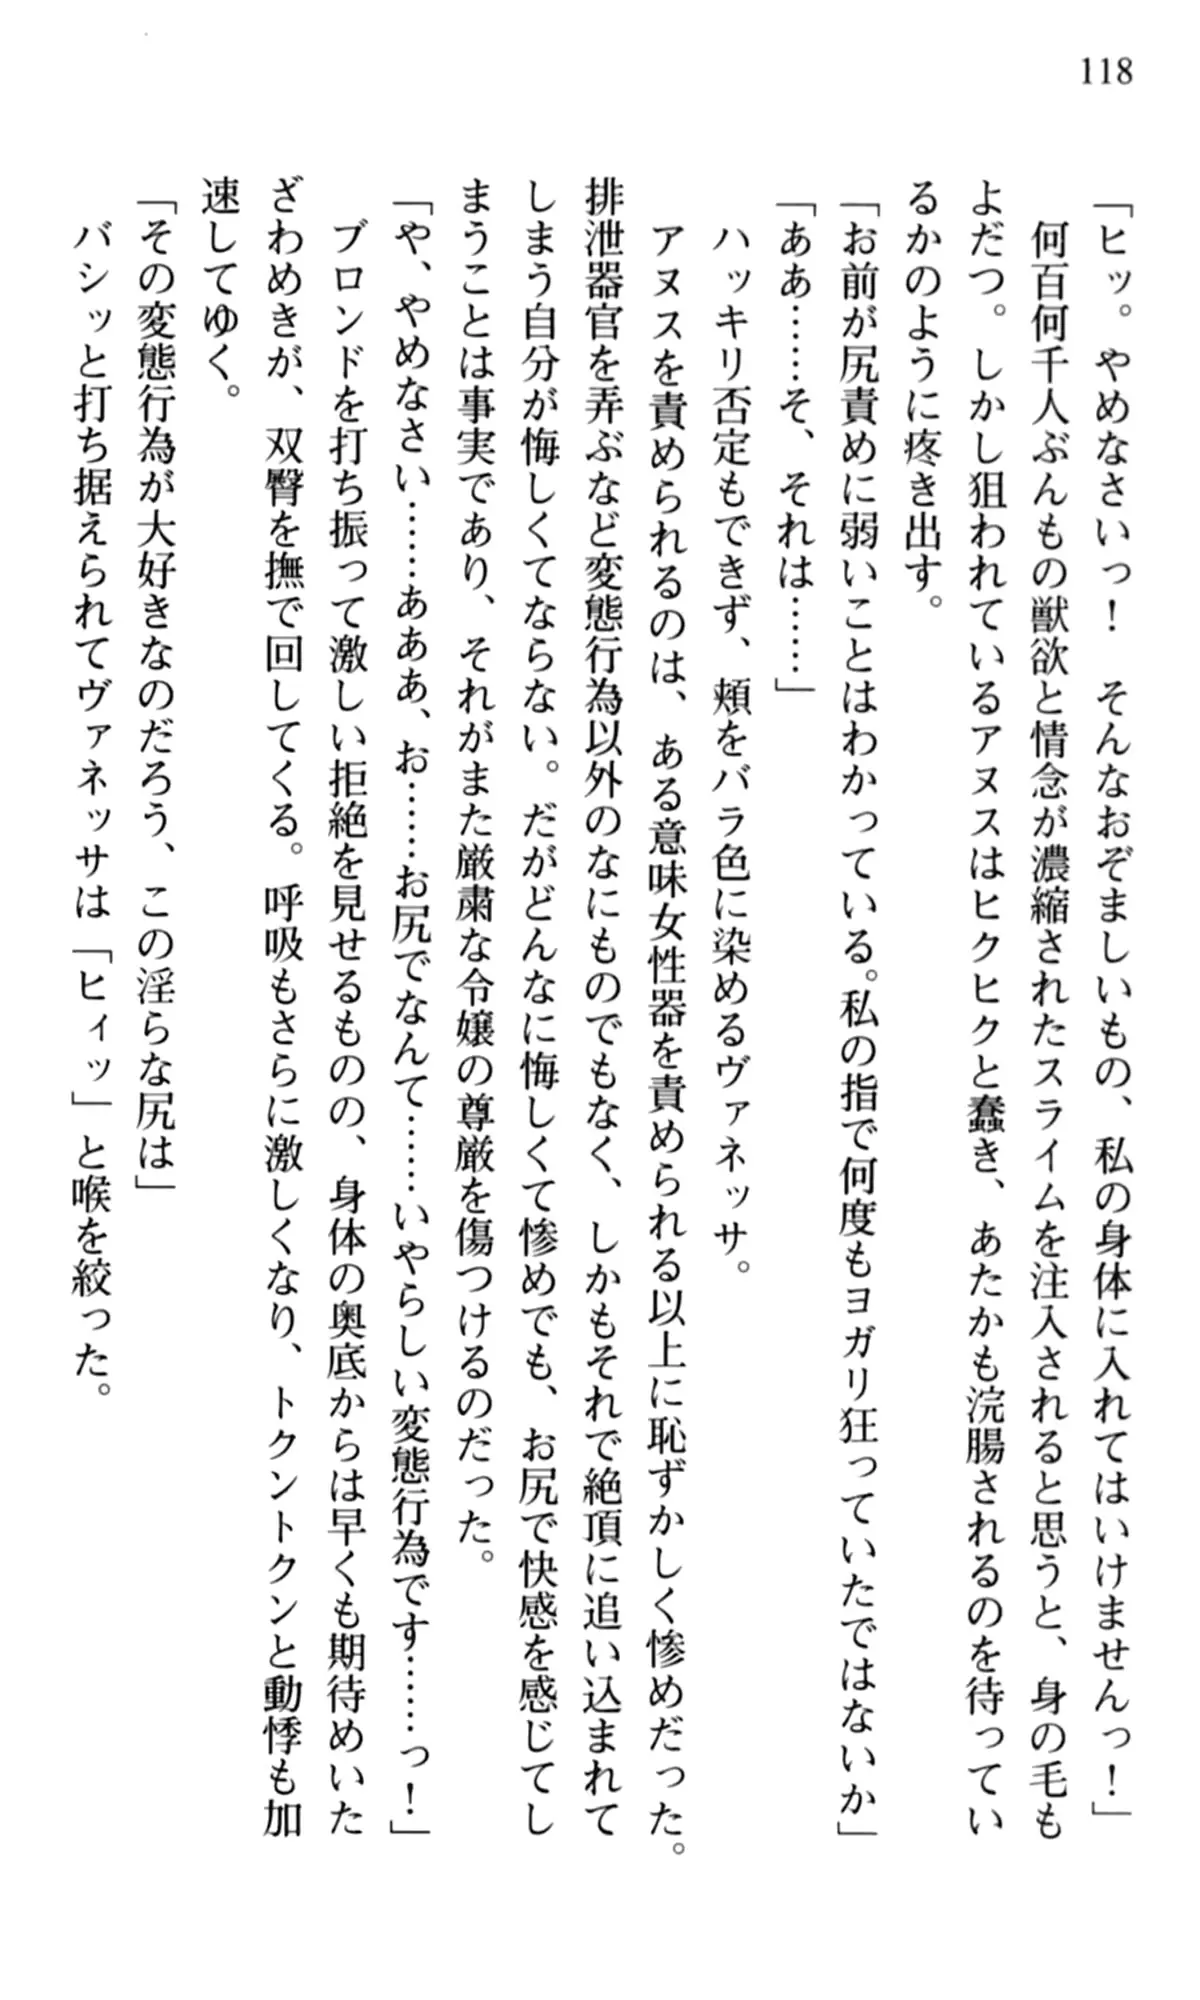 118
「ヒッ。やめなさいっ！　そんなおぞましいもの、私の身体に入れてはいけませんっ！」
　何百何千人ぶんもの獣欲と情念が濃縮されたスライムを注入されると思うと、身の毛も
よだつ。しかし狙われているアヌスはヒクヒクと蠢き、あたかも浣腸されるのを待ってい
るかのように疼き出す。
「お前が尻責めに弱いことはわかっている。私の指で何度もヨガリ狂っていたではないか」
「ああ……そ、それは……」
　ハッキリ否定もできず、頬をバラ色に染めるヴァネッサ。
　アヌスを責められるのは、ある意味女性器を責められる以上に恥ずかしく惨めだった。
排泄器官を弄ぶなど変態行為以外のなにものでもなく、しかもそれで絶頂に追い込まれて
しまう自分が悔しくてならない。だがどんなに悔しくて惨めでも、お尻で快感を感じてし
まうことは事実であり、それがまた厳粛な令嬢の尊厳を傷つけるのだった。
「や、やめなさい……ああぁ、お……お尻でなんて……いやらしい変態行為です……っ！」
　ブロンドを打ち振って激しい拒絶を見せるものの、身体の奥底からは早くも期待めいた
ざわめきが、双臀を撫で回してくる。呼吸もさらに激しくなり、トクントクンと動悸も加
速してゆく。
「その変態行為が大好きなのだろう、この淫らな尻は」
　バシッと打ち据えられてヴァネッサは「ヒィッ」と喉を絞った。